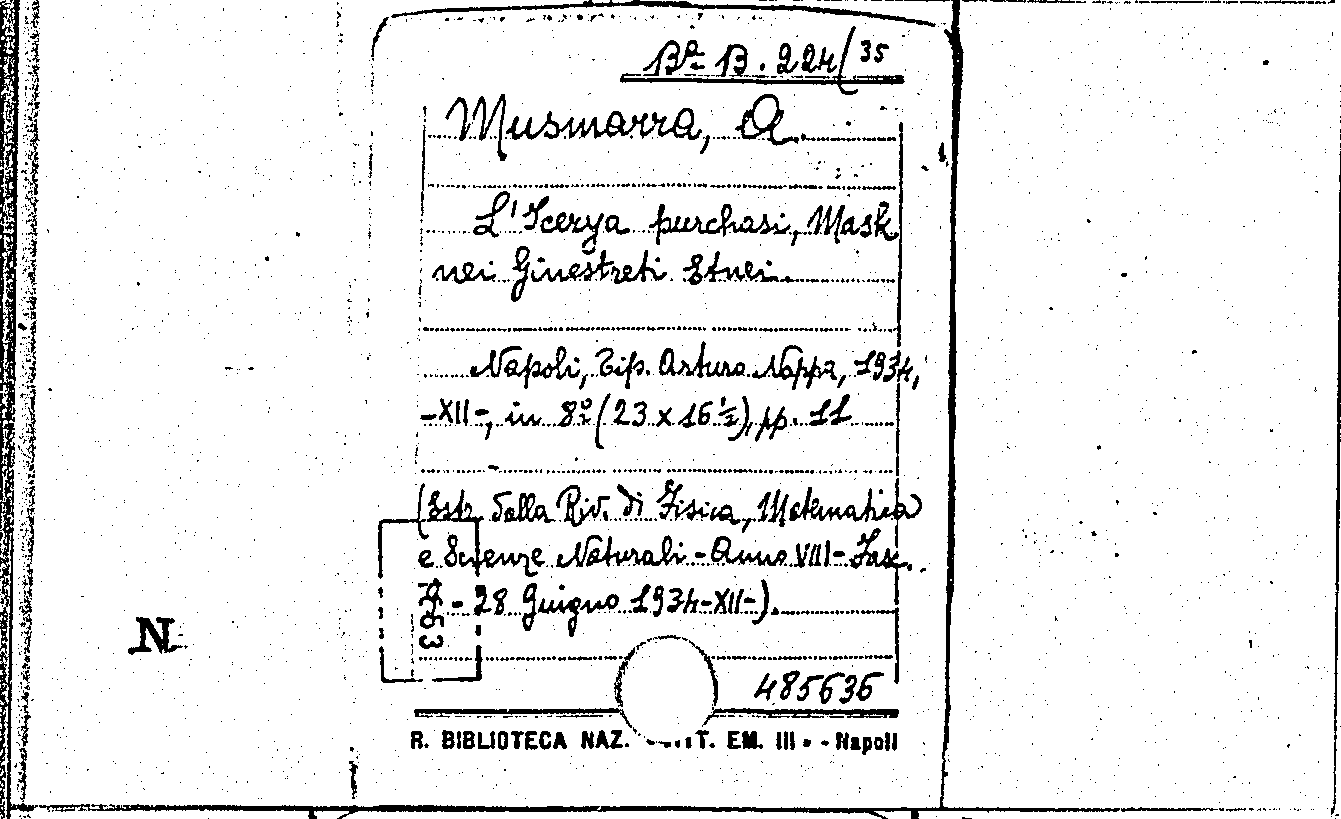 Bª B. 224/35
Musmarra, A.
L'Icerya purchasi, Mask
nei Ginestreti Etnei.
Napoli, Tip. Arturo Nappa, 1934,
-XII-, in 8º (23 x 16 ½), pp. 11
(Estr. dalla Riv. di Fisica, Matematica
e Scienze Naturali - Anno VIII - Fasc.
9 - 28 Giugno 1934-XII-).
N
485636
R. BIBLIOTECA NAZ. VITT. EM. III - - Napoli